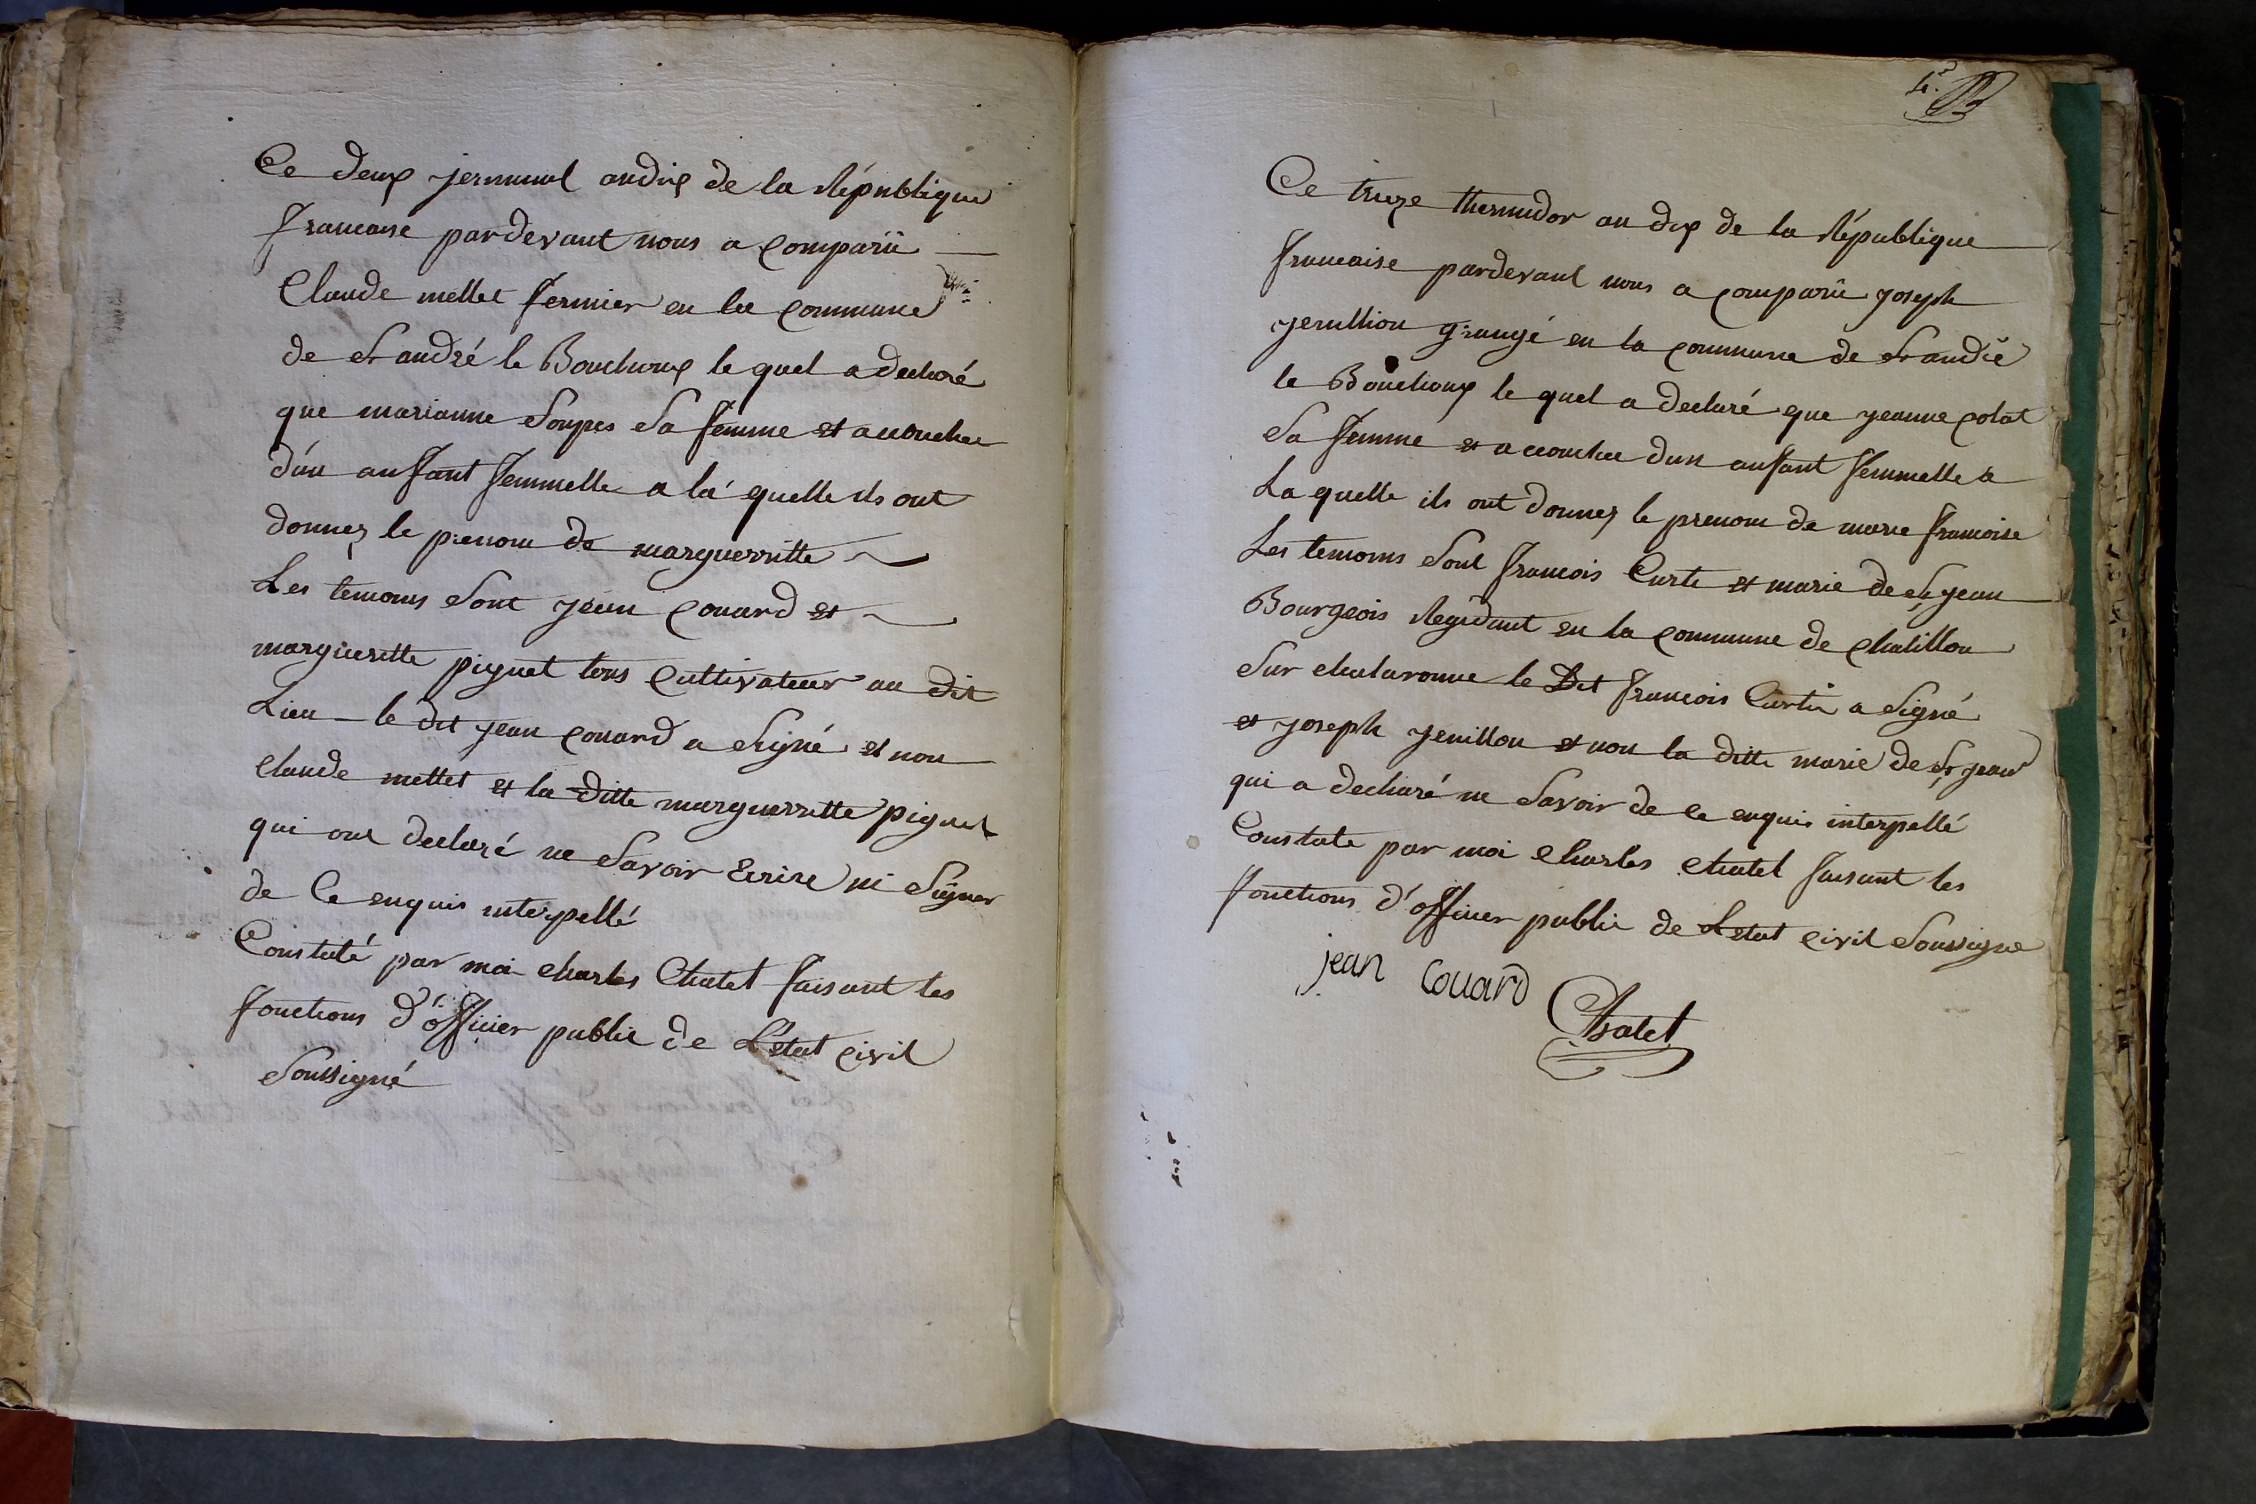 Ce deux jerminal andix de la République
francaise pardevant nous a comparü
Claude mettet fermier en la commune
de st andré le Bouchoux le quel a declaré
que marianne Soupes sa femme et accouchee
d'un anfant femmelle a la quelle ils ont
donnez le prenom de marguerritte
Les temoins sont jean couard et
margueritte piquet tous cultivateur au dit
Lieu le dit jean couard a signé et non
claude mettet et la ditte marguerritte piquet
qui ont declaré ne savoir Ecrire ni signer
de Ce enquis interpellé
Constaté par moi charles Chatel faisant les
fonctions d'officier public de Letat civil
soussigné
4.
Ce treize thermidor an dix de la République
francaise pardevant nous a comparü joseph
jenillion grangé en la commune de st andré
le Bouchoux le quel a declaré que jeanne colat
sa femme et accouchee dun anfant femmelle a
La quelle ils ont donnez le prenom de marie francoise
Les temoins sont francois Curti et marie de st jean
Bourgeois Rezidant en la commune de chatillon
sur chalaronne le Dit francois Curti a signé
et joseph jenillon et non la ditte marie de st jean
qui a declaré ne savoir de ce enquis interpellé
Constate par moi charles chatel faisant les
fonctions d'officier public de Letat civil soussigne
jean couard
Chatel